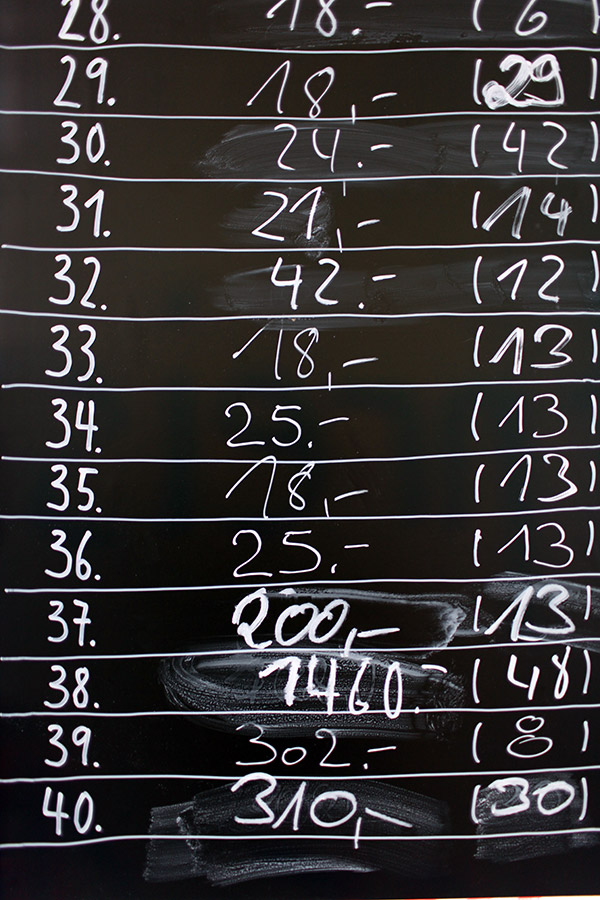 28. 18.- (6)
29. 18,- (29)
30. 24.- (42)
31. 21,- (14)
32. 42.- (12)
33. 18,- (13)
34. 25.- (13)
35. 18,- (13)
36. 25.- (13)
37. 200,- (13)
38. 1460.- (48)
39. 302.- (8)
40. 310,- (30)